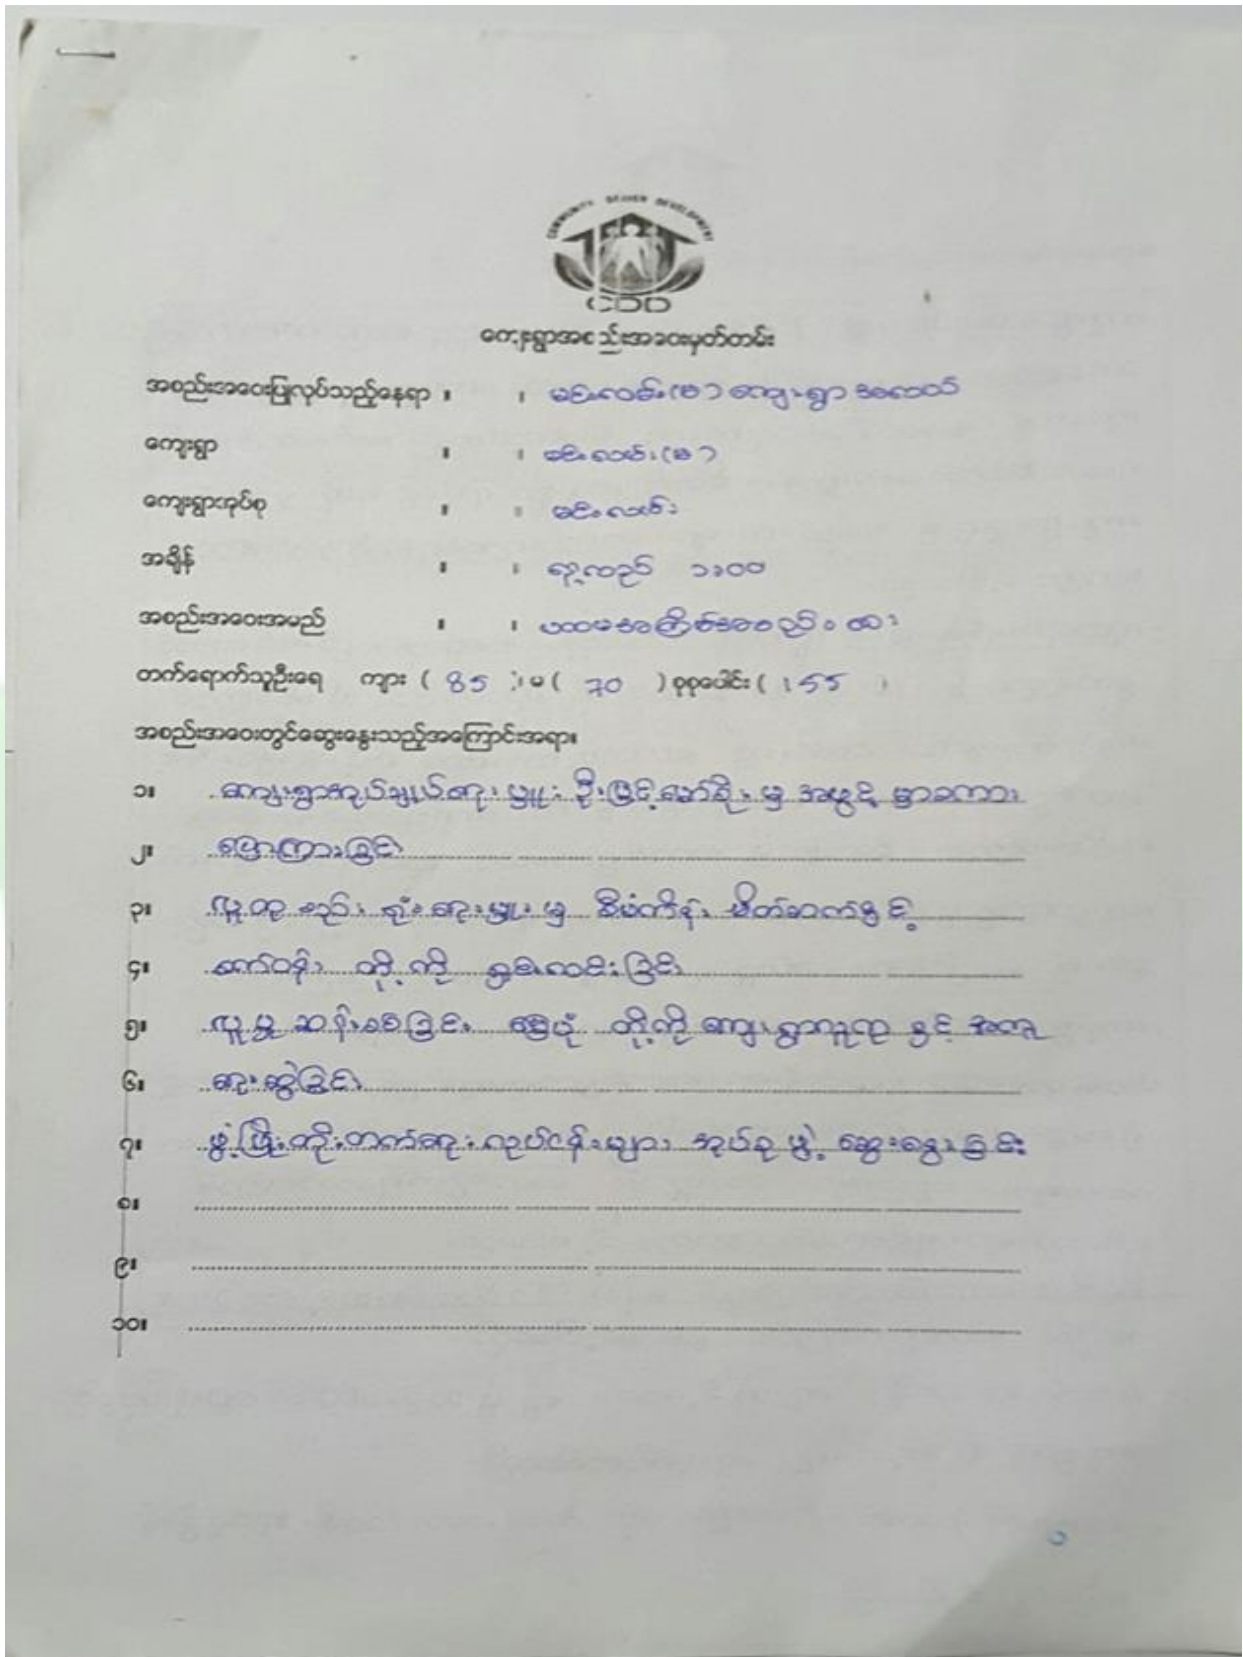 COMMUNITY DRIVEN DEVELOPMENT
CDD
ကျေးရွာအစည်းအဝေးမှတ်တမ်း
အစည်းအဝေးပြုလုပ်သည့်နေရာ ။ ။ မင်းလမ်း(မ) ကျေးရွာ
ကျေးရွာ ။ ။ မင်းလမ်း(မ)
ကျေးရွာအုပ်စု ။ ။ မင်းလမ်း
အချိန် ။ ။ ၁း၀၀
အစည်းအဝေးအမည် ။ ။ ပထမအကြိမ်အစည်းအဝေး
တက်ရောက်သူဦးရေ ကျား ( 85 )၊ မ ( 70 ) စုစုပေါင်း ( 155 )
အစည်းအဝေးတွင်ဆွေးနွေးသည့်အကြောင်းအရာ။
၁။ ကျေးရွာအုပ်ချုပ်ရေးမှူး ဦးမြင့်မော်စိုး မှ အဖွင့် မှာစကား
၂။ ပြောကြားခြင်း
၃။ လူထု စည်းရုံးရေးမှူး မှ စီမံကိန်း မိတ်ဆက်နှင့်
၄။ တို့ကို ရှင်းလင်းခြင်း
၅။ လူမှု ဆန်းစစ်ခြင်း မြေပုံ တို့ကို ကျေးရွာလူထု နှင့် အတူ
၆။ ရေးဆွဲခြင်း
၇။ ဖွံ့ဖြိုးတိုးတက်ရေး လုပ်ငန်းများ အုပ်စုဖွဲ့ ဆွေးနွေးခြင်း
၈။
၉။
၁၀။
၁